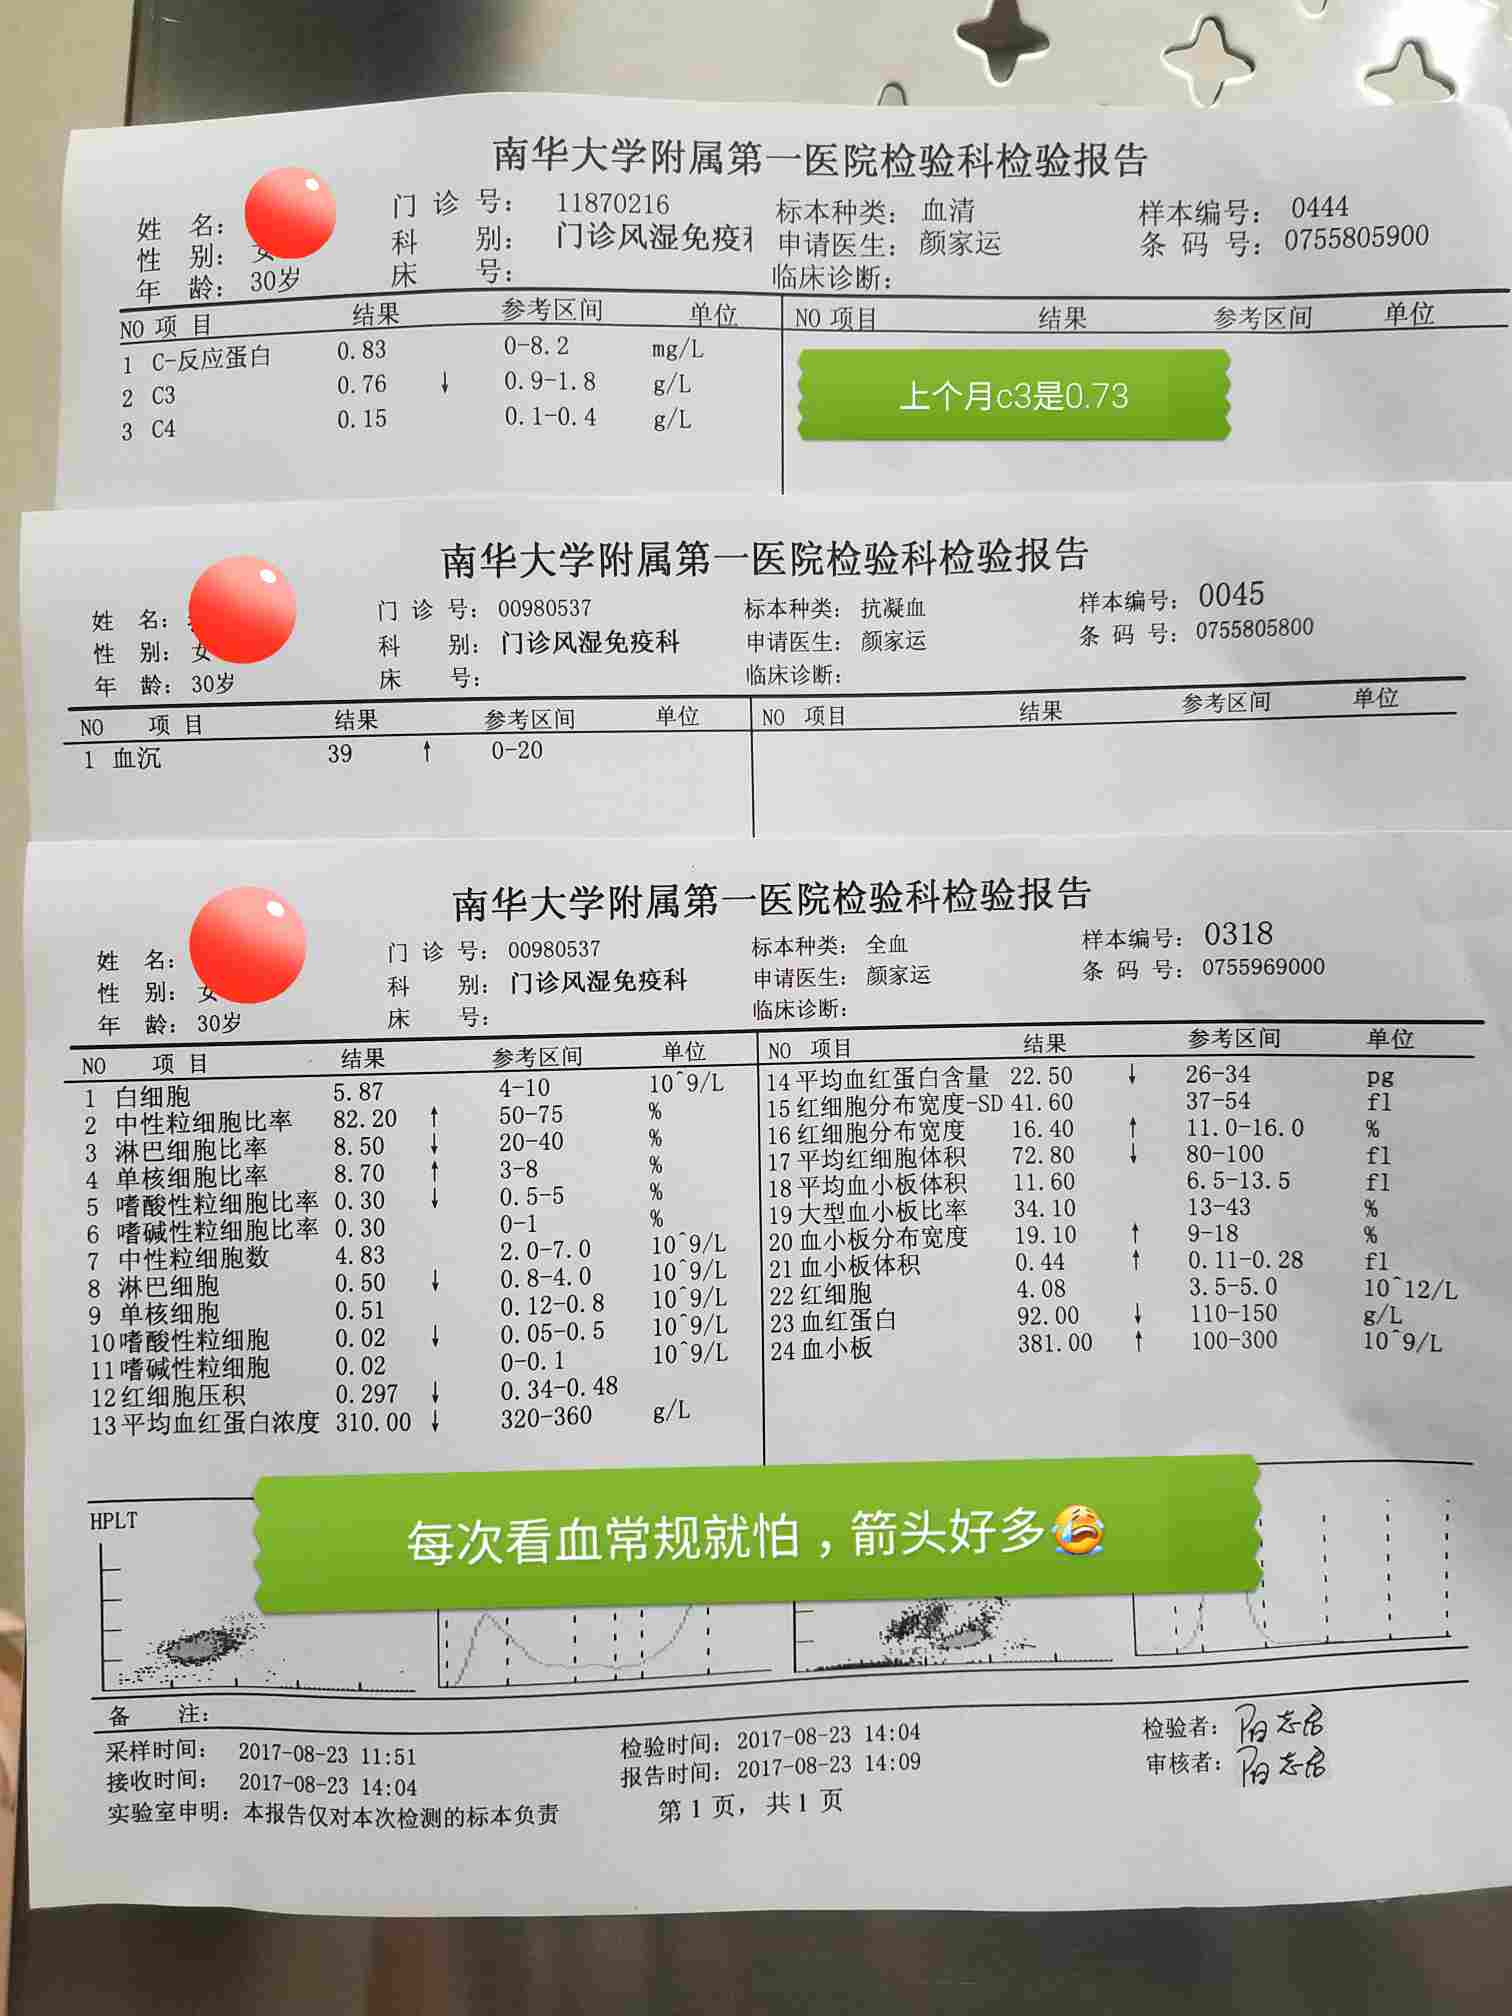 南华大学附属第一医院检验科检验报告
姓 名： 门 诊 号： 11870216 标本种类： 血清 样本编号： 0444
性 别： 女 科 别： 门诊风湿免疫科 申请医生： 颜家运 条 码 号： 0755805900
年 龄： 30岁 床 号： 临床诊断：
NO 项 目 结果 参考区间 单位 NO 项目 结果 参考区间 单位
1 C-反应蛋白 0.83 0-8.2 mg/L
2 C3 0.76 ↓ 0.9-1.8 g/L
3 C4 0.15 0.1-0.4 g/L
上个月c3是0.73
南华大学附属第一医院检验科检验报告
姓 名： 门 诊 号： 00980537 标本种类： 抗凝血 样本编号： 0045
性 别： 女 科 别： 门诊风湿免疫科 申请医生： 颜家运 条 码 号： 0755805800
年 龄： 30岁 床 号： 临床诊断：
NO 项 目 结果 参考区间 单位 NO 项目 结果 参考区间 单位
1 血沉 39 ↑ 0-20
南华大学附属第一医院检验科检验报告
姓 名： 门 诊 号： 00980537 标本种类： 全血 样本编号： 0318
性 别： 女 科 别： 门诊风湿免疫科 申请医生： 颜家运 条 码 号： 0755969000
年 龄： 30岁 床 号： 临床诊断：
NO 项 目 结果 参考区间 单位 NO 项目 结果 参考区间 单位
1 白细胞 5.87 4-10 10^9/L 14 平均血红蛋白含量 22.50 ↓ 26-34 pg
2 中性粒细胞比率 82.20 ↑ 50-75 % 15 红细胞分布宽度-SD 41.60 37-54 fl
3 淋巴细胞比率 8.50 ↓ 20-40 % 16 红细胞分布宽度 16.40 ↑ 11.0-16.0 %
4 单核细胞比率 8.70 ↑ 3-8 % 17 平均红细胞体积 72.80 ↓ 80-100 fl
5 嗜酸性粒细胞比率 0.30 ↓ 0.5-5 % 18 平均血小板体积 11.60 6.5-13.5 fl
6 嗜碱性粒细胞比率 0.30 0-1 % 19 大型血小板比率 34.10 13-43 %
7 中性粒细胞数 4.83 2.0-7.0 10^9/L 20 血小板分布宽度 19.10 ↑ 9-18 %
8 淋巴细胞 0.50 ↓ 0.8-4.0 10^9/L 21 血小板体积 0.44 ↑ 0.11-0.28 fl
9 单核细胞 0.51 0.12-0.8 10^9/L 22 红细胞 4.08 3.5-5.0 10^12/L
10 嗜酸性粒细胞 0.02 ↓ 0.05-0.5 10^9/L 23 血红蛋白 92.00 ↓ 110-150 g/L
11 嗜碱性粒细胞 0.02 0-0.1 10^9/L 24 血小板 381.00 ↑ 100-300 10^9/L
12 红细胞压积 0.297 ↓ 0.34-0.48
13 平均血红蛋白浓度 310.00 ↓ 320-360 g/L
HPLT
每次看血常规就怕，箭头好多😭
备 注：
采样时间： 2017-08-23 11:51 检验时间： 2017-08-23 14:04 检验者：
接收时间： 2017-08-23 14:04 报告时间： 2017-08-23 14:09 审核者：
实验室申明：本报告仅对本次检测的标本负责 第 1 页，共 1 页